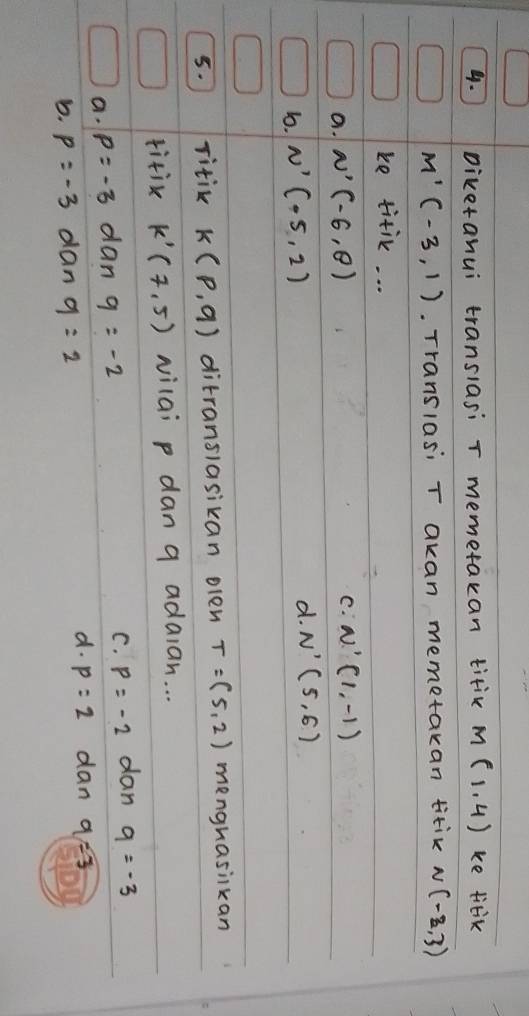 4. Diketahui translasi T memetakan titik M (1.4) ke titik
M' (-3,1). Translasi T akan memetakan titik N(-2,3)
ke titik ...
a. N' (-6,0)
c. N' (1,-1)
b. N' (-5,2)
d. N' (5,6)
5. Titik K (P,q) ditranslasikan oleh T = (5,2) menghasilkan
titik K' (7,5) Nilai p dan q adalah...
a. p = -3 dan q = -2
c. p = -2 dan q = -3
b. p = -3 dan q = 2
d. p = 2 dan q = 3
SIDU